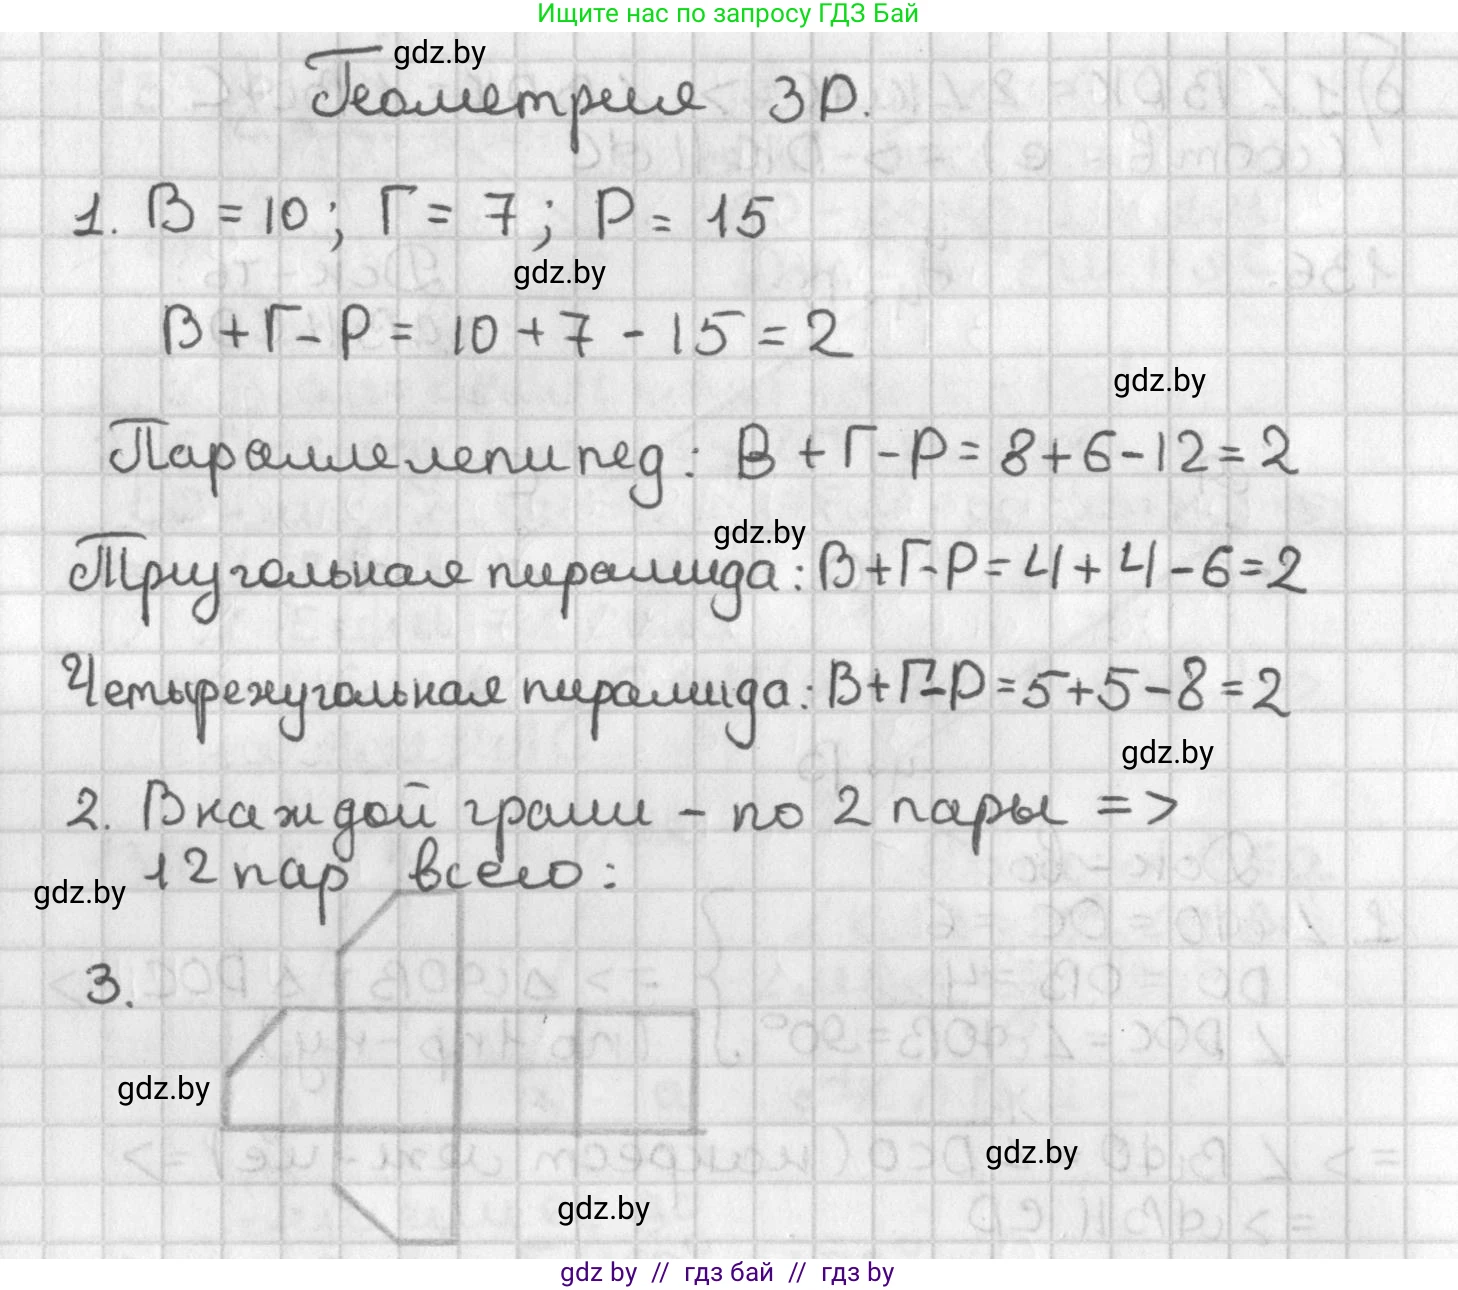 Ищите нас по запросу ГДЗ Бай
gdz.by
Геометрия 3D.
1. В = 10; Г = 7; Р = 15
gdz.by
В + Г - Р = 10 + 7 - 15 = 2
gdz.by
Параллелепипед: В + Г - Р = 8 + 6 - 12 = 2
gdz.by
Треугольная пирамида: В + Г - Р = 4 + 4 - 6 = 2
Четырехугольная пирамида: В + Г - Р = 5 + 5 - 8 = 2
gdz.by
2. В каждой грани - по 2 пары =>
12 пар всего:
gdz.by
3.
gdz.by
gdz.by
gdz.by
gdz by // гдз бай // гдз by